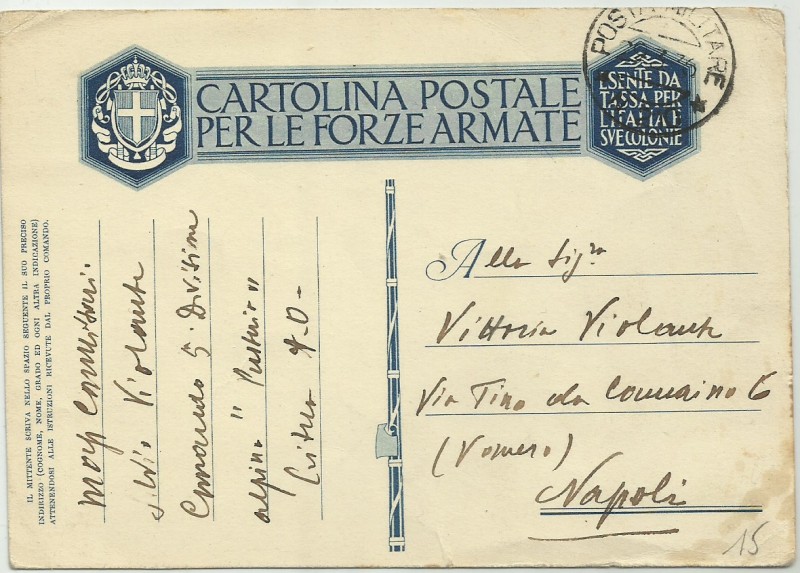 CARTOLINA POSTALE
PER LE FORZE ARMATE
ESENTE DA
TASSA PER
L'ITALIA E
SVE COLONIE
POSTA MILITARE
IL MITTENTE SCRIVA NELLO SPAZIO SEGUENTE IL SUO PRECISO
INDIRIZZO (COGNOME, NOME, GRADO ED OGNI ALTRA INDICAZIONE)
ATTENENDOSI ALLE ISTRUZIONI RICEVUTE DAL PROPRIO COMANDO.
Violante
Comando 5ª Divisione
alpina "Pusteria"
A.O.
Alla Sig.ra
Vittoria Violante
Via Tino da Camaino 6
(Vomero)
Napoli
15